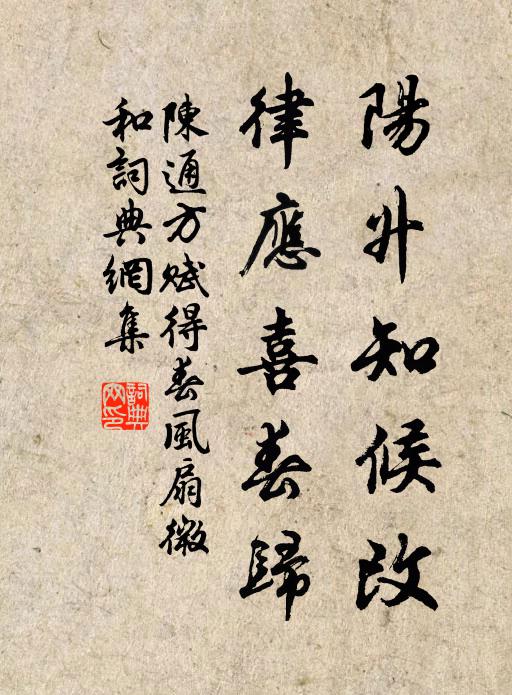 陽升知候改
律應喜春歸
陳通方賦得春風扇微
和詞典網集
詞典
网印